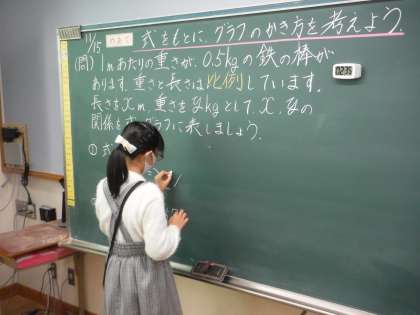 11/15 めあて 式をもとに、グラフのかき方を考えよう。
(問) 1mあたりの重さが、0.5kgの鉄の棒が
あります。重さと長さは比例しています。
長さをxm、重さをykgとして、x、yの
関係を式、グラフに表しましょう。
① 式
02:35